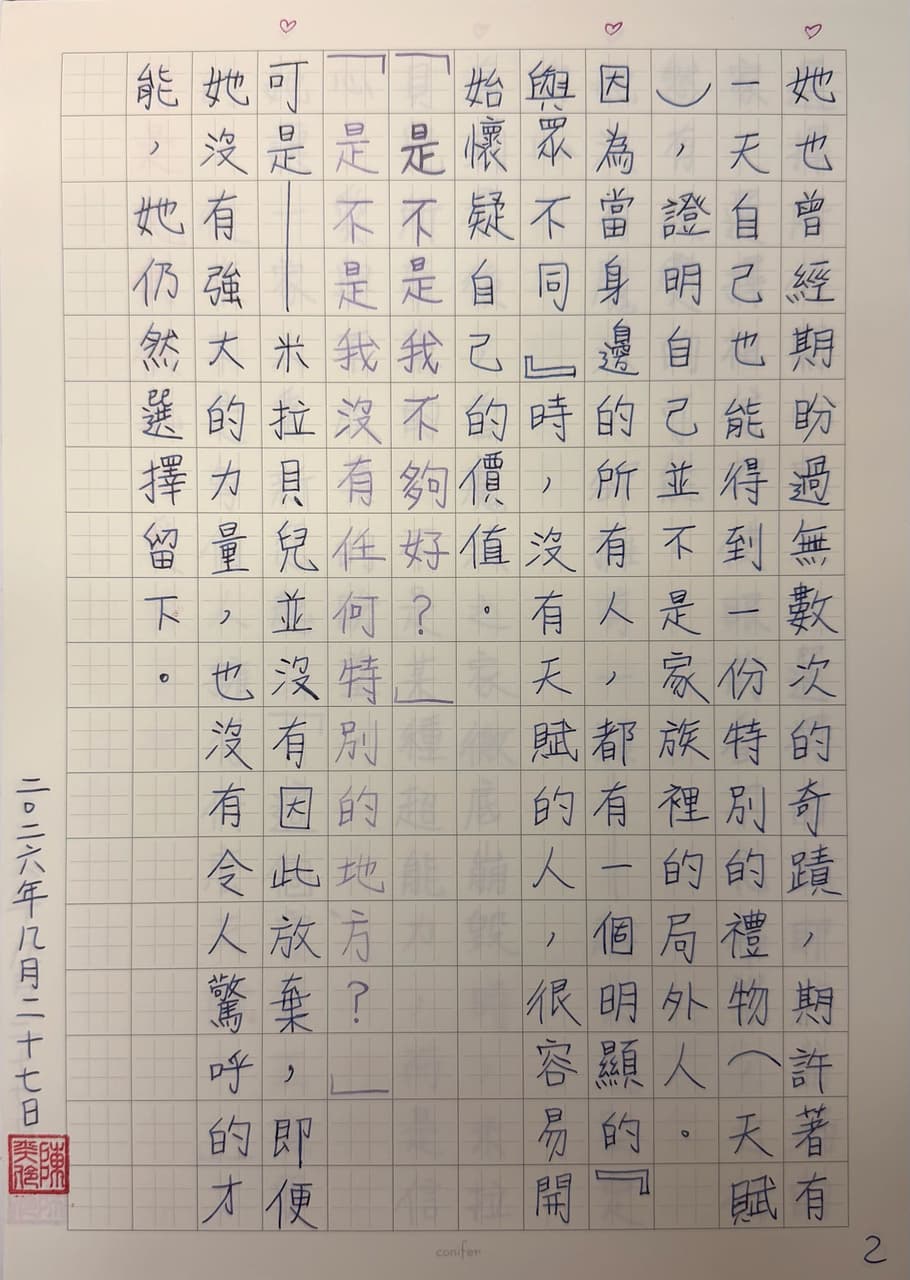 她也曾經期盼過無數次的奇蹟，期許著有
一天自己也能得到一份特別的禮物（天賦
），證明自己並不是家族裡的局外人。
因為當身邊的所有人，都有一個明顯的『
與眾不同』時，沒有天賦的人，很容易開
始懷疑自己的價值。
「是不是我不夠好？」
「是不是我沒有任何特別的地方？」
可是——米拉貝兒並沒有因此放棄，即便
她沒有強大的力量，也沒有令人驚呼的才
能，她仍然選擇留下。
二〇二六年八月二十七日
conifer
2